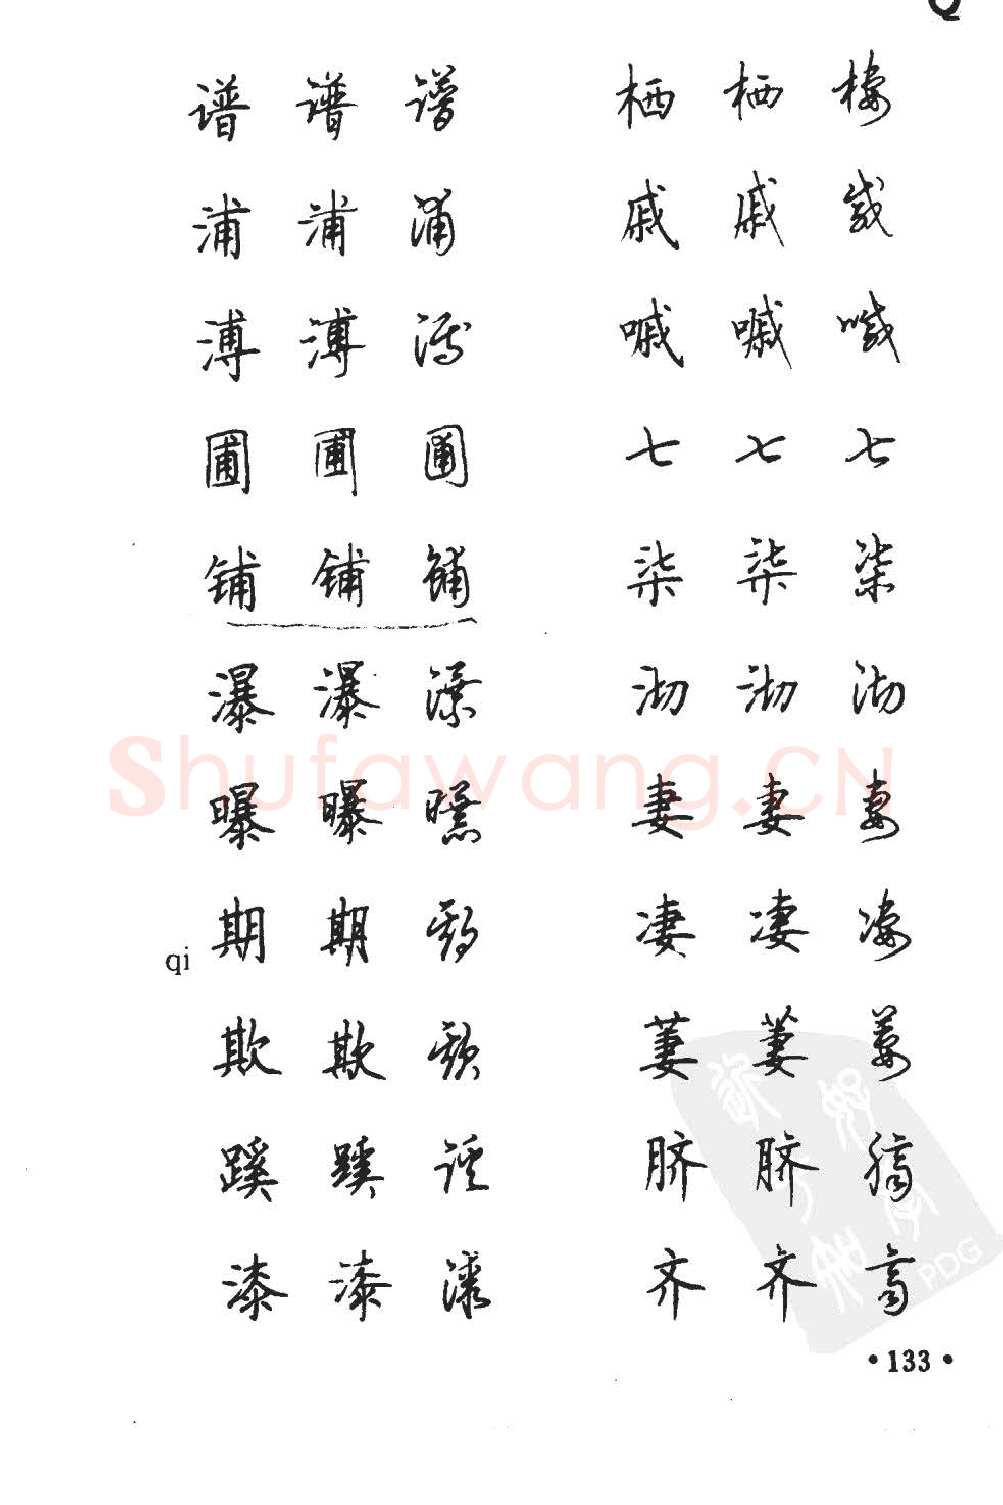 Q
谱 谱 谱
浦 浦 浦
溥 溥 溥
圃 圃 圃
铺 铺 铺
瀑 瀑 瀑
曝 曝 曝
qi 期 期 期
欺 欺 欺
蹊 蹊 蹊
漆 漆 漆
栖 栖 棲
戚 戚 戚
嘁 嘁 嘁
七 七 七
柒 柒 柒
沏 沏 沏
妻 妻 妻
凄 凄 凄
萋 萋 萋
脐 脐 脐
齐 齐 齐
·133·
Shufawang.CN
PDG